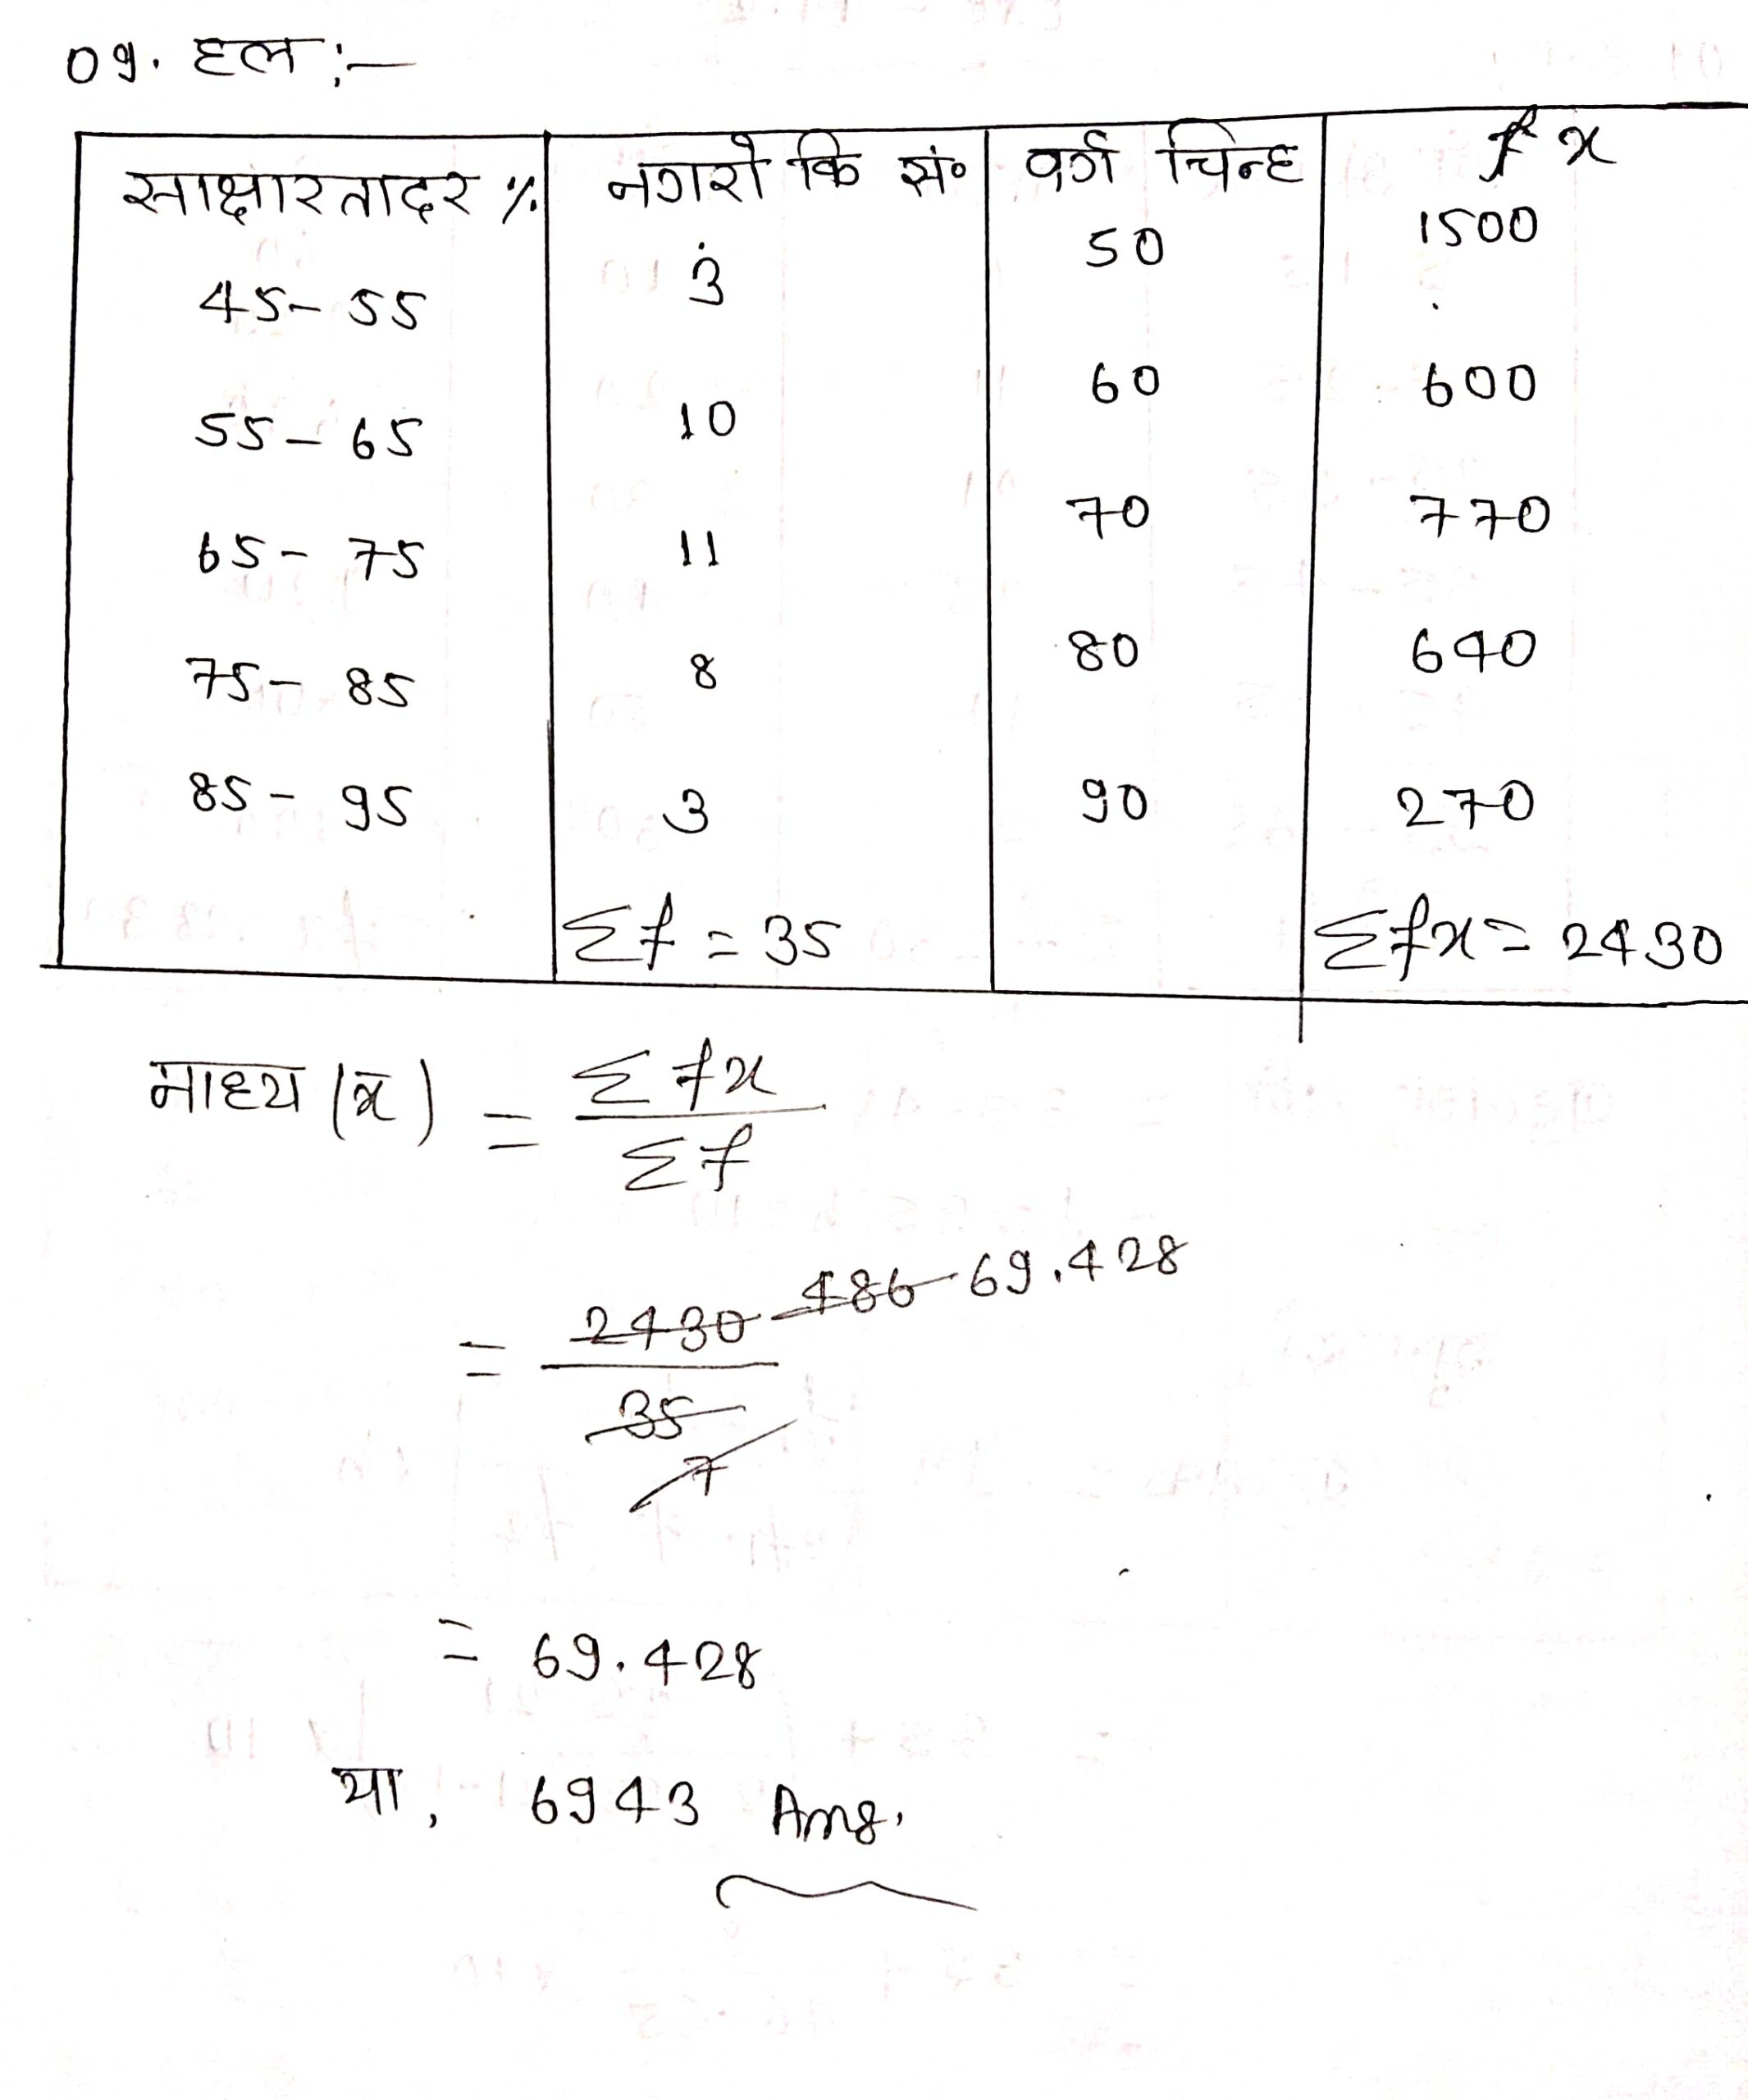 09. हल :-
साक्षारतादर % नगरो कि सं० वर्ग चिन्ह f x
45- 55 3 50 1500
55- 65 10 60 600
65- 75 11 70 770
75- 85 8 80 640
85- 95 3 90 270
Σf = 35 Σfx = 2430
माध्य (x̄) = Σfx / Σf
= 2430 / 35 486 / 7 69.428
= 69.428
या, 6943 Ans.